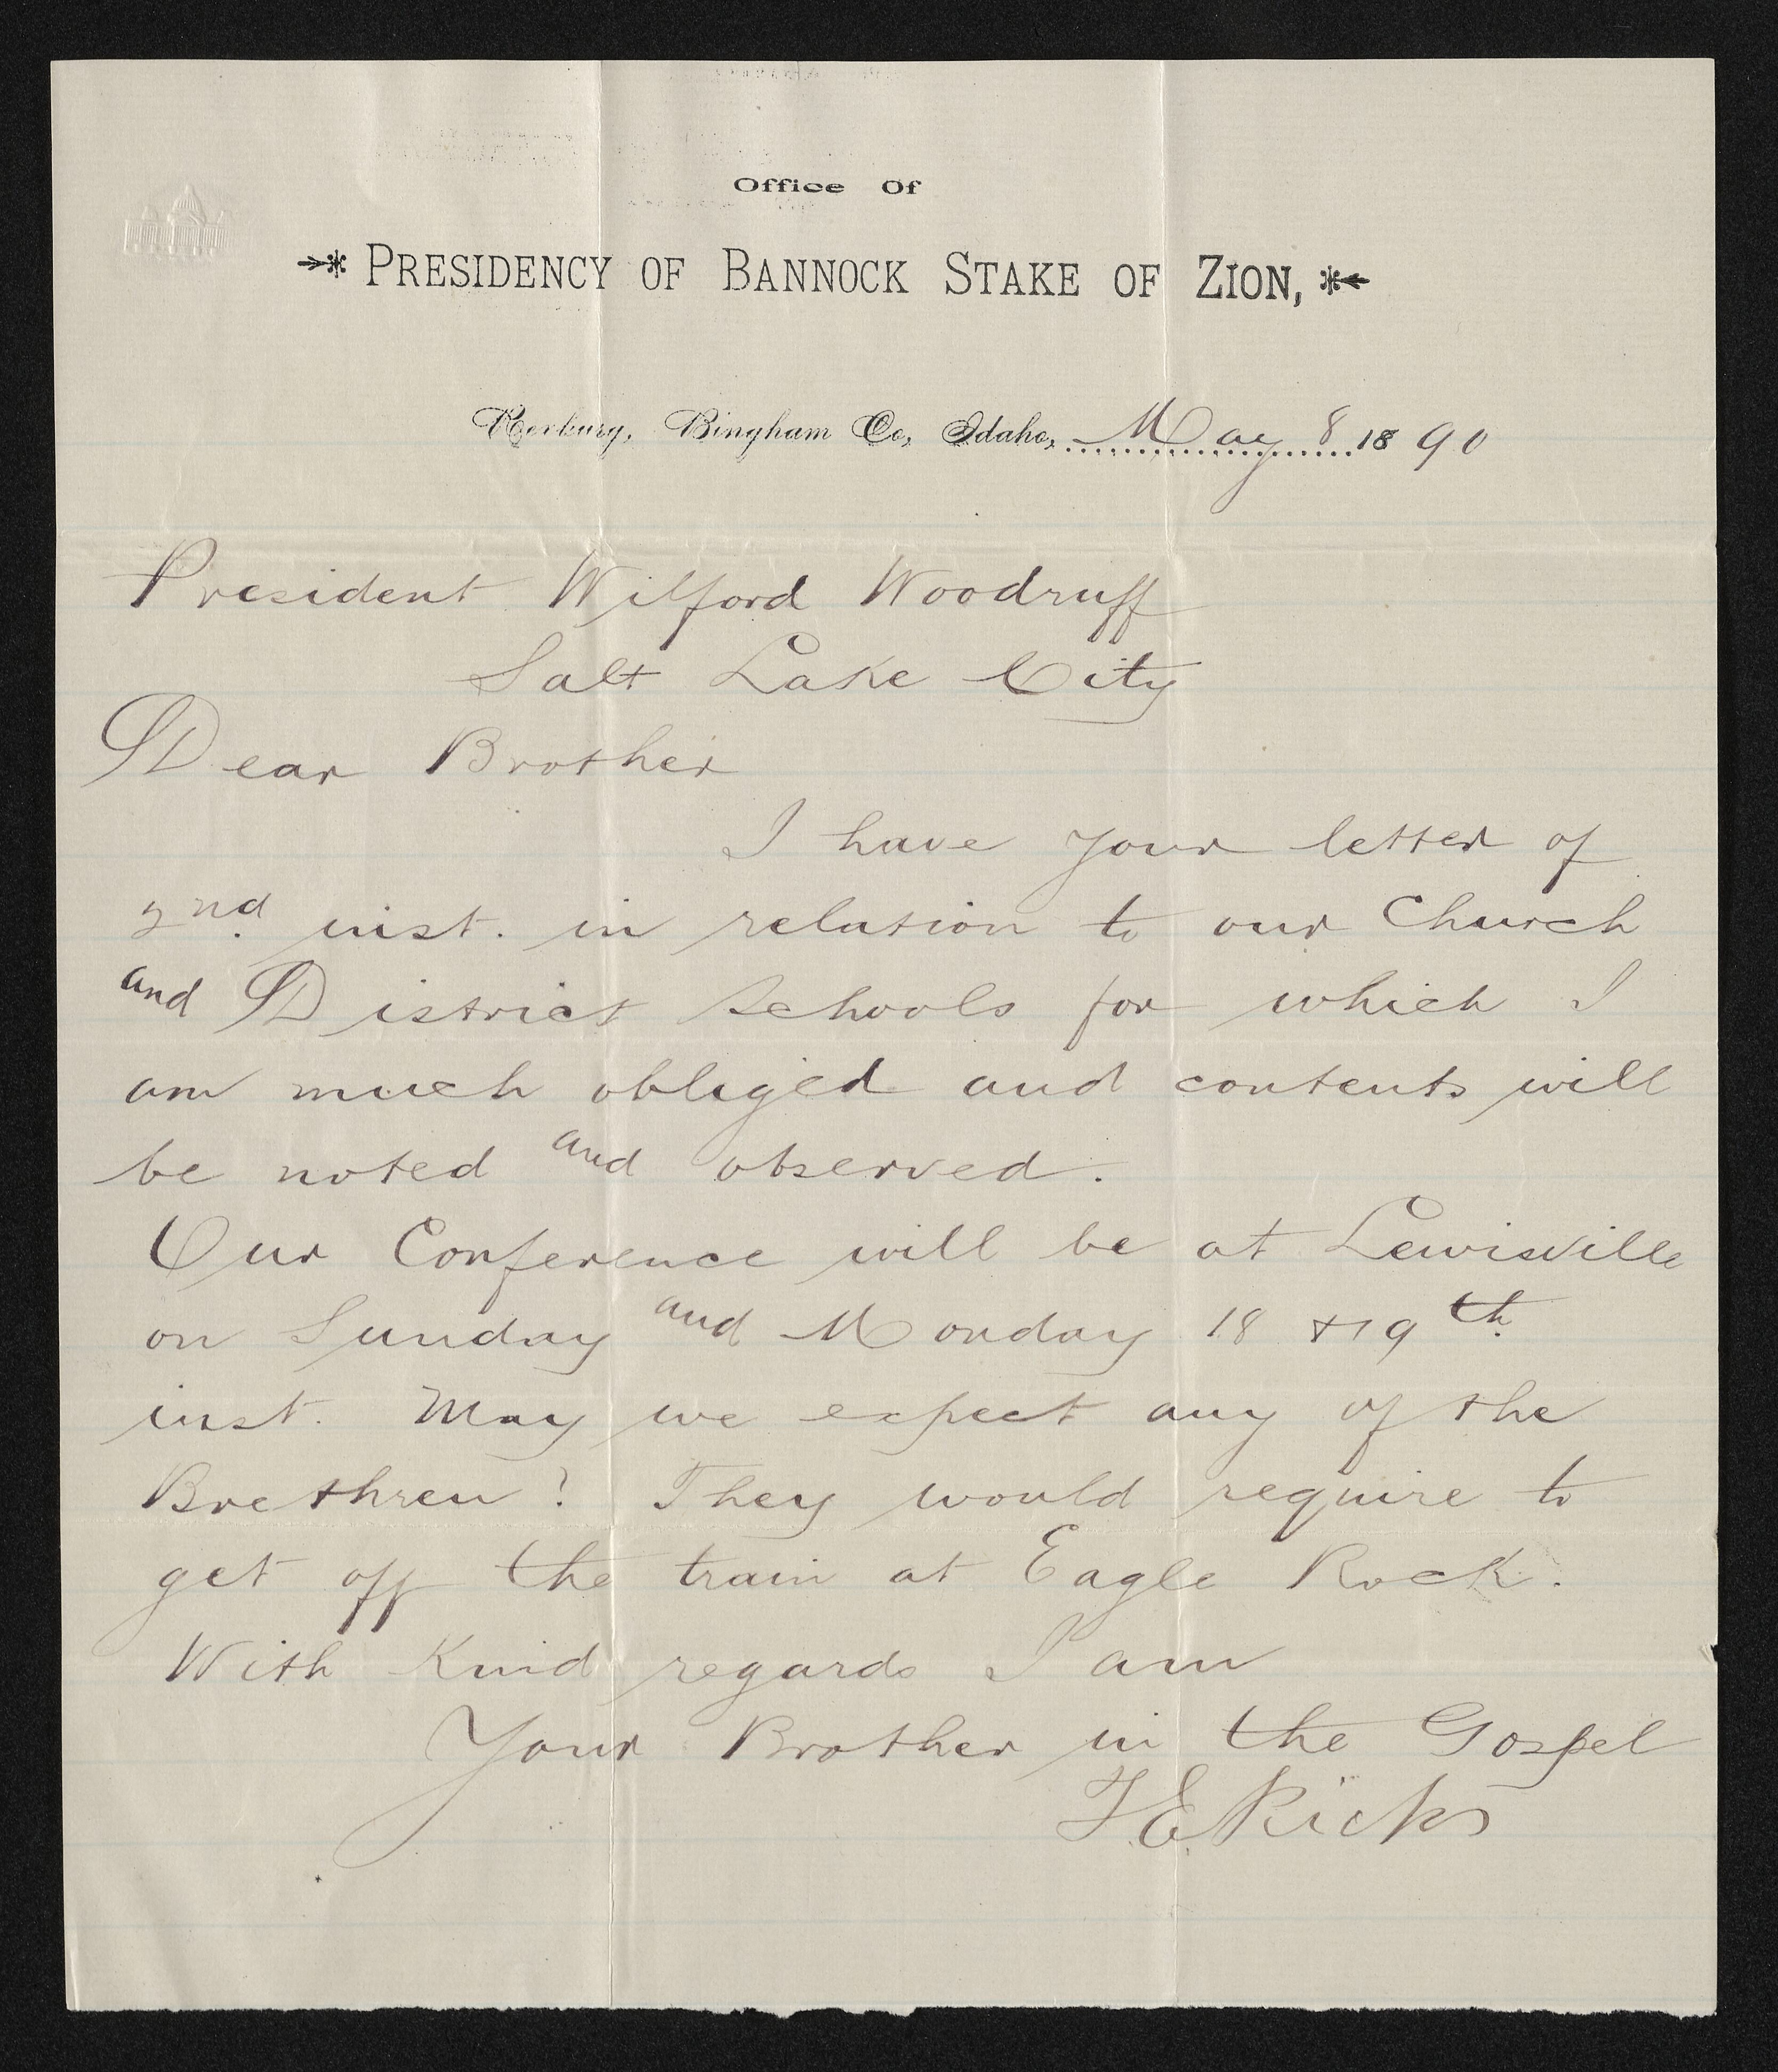 Office Of
PRESIDENCY OF BANNOCK STAKE OF ZION,
Rexburg, Bingham Co, Idaho, May 8 1890
President Wilford Woodruff
Salt Lake City
Dear Brother
I have your letter of
2nd. inst. in relation to our Church
and District schools for which I
am much obliged and contents will
be noted and observed.
Our Conference will be at Lewisville
on Sunday and Monday 18 & 19th
inst. May we expect any of the
Brethren? They would require to
get off the train at Eagle Rock.
With Kind regards I am
Your Brother in the Gospel
T E Ricks